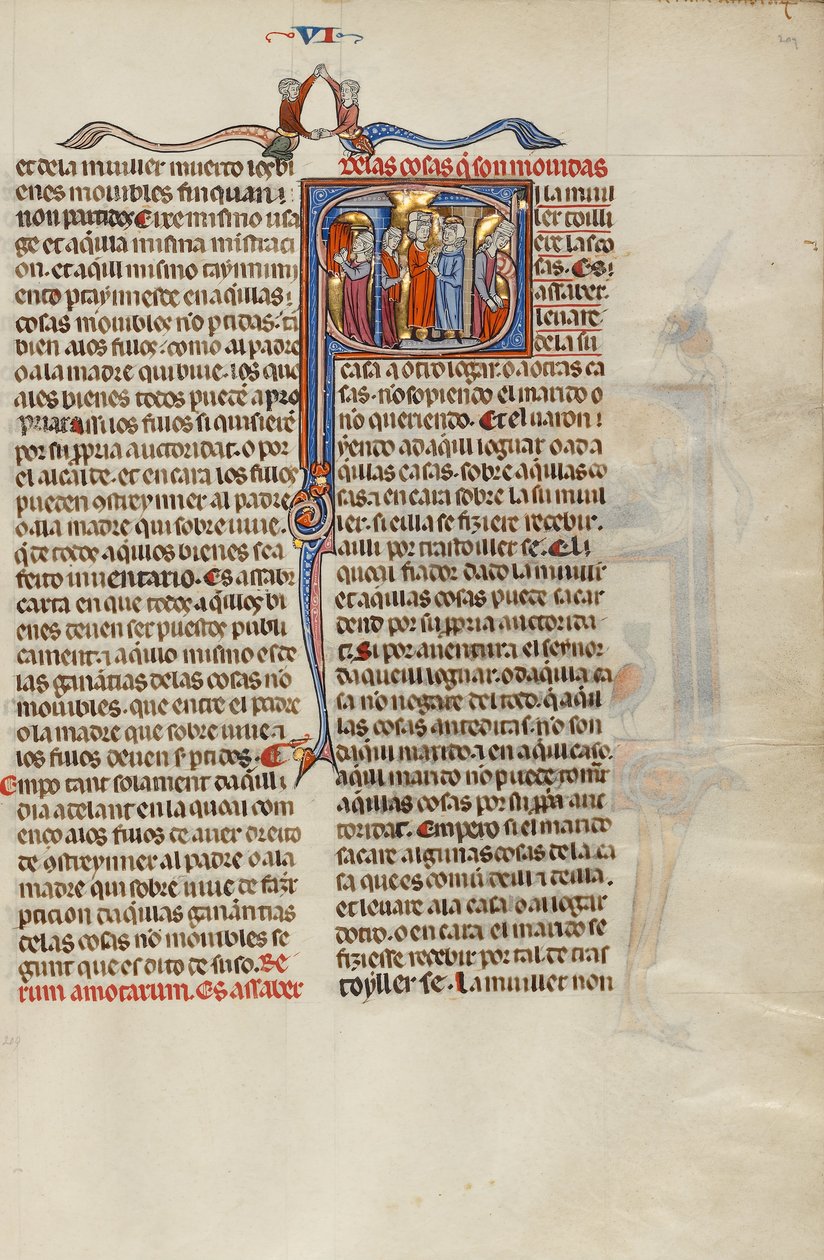 VI
209
et dela muiller muerto los bi
enes mouibles finquan i
non partidos Eixe mismo usa
ge et aq̃lla misma mistraci
on. et aq̃ll mismo
cosas mouibles nõ ꝑtidas. tã
bien alos fillos. como al padre
o ala madre qui biue. los qua
ales bienes todos puedẽ a pro
los fillos si quisierẽ
por su ꝓpria auctoridat. o por
el alcalde. et encara los fillos
pueden 9streynner al padre
o ala madre qui sobre uiue.
q̃ de todos aq̃llos bienes sea
feito inuentario. Es assabr
carta en que todos aq̃llos bi
enes deuen ser puestos publi
cament. ⁊ aq̃llo mismo es de
las ganãtias delas cosas nõ
mouibles. que entre el padre
o la madre que sobre uiue ⁊
los fillos deuen s̃ ꝑtidos. E
Empo tant solament daq̃lli
dia adelant en la quoal com
enço alos fillos de auer dreito
de 9streynner al padre o ala
madre qui sobre uiue de fazr̃
ꝑticion daq̃llas ganãntias
delas cosas nõ mouibles se
gunt que es dito de suso. Re
rum amotarum. Es assaber
Delas cosas q̃ son mouidas
Si la muil
ler toilli
ere las co
sas. Es
assaber.
leuare
de la su
casa a otro logar. o a otras ca
sas. nõ sopiendo el marido o
nõ queriendo. Et el uaron i
yendo ad aq̃ll loguar o ad a
q̃llas casas. sobre aq̃llas co
sas ⁊ encara sobre la su muil
ler. si eilla se fiziere recebir.
ailli por trastoiller se. El
quoal fiador dado la muiller
et aq̃llas cosas puede sacar
dend por su ꝓpria auctorida
t. Si por auentura el seynor
daqueill loguar. o daq̃lla ca
sa nõ negare del todo. q̃ aq̃ll
las cosas anteditas. nõ son
daq̃ll marido. ⁊ en aq̃ll caso.
aq̃ll marido nõ puede
aq̃llas cosas por su ꝓpa auc
toridat. Empero si el marido
sacare algunas cosas de la ca
sa que es comũ deill ⁊ deilla.
et leuare a la casa o al logar
dotro. o encara el marido se
fiziesse recebir por tal de tras
toyller se. La muiller non
209